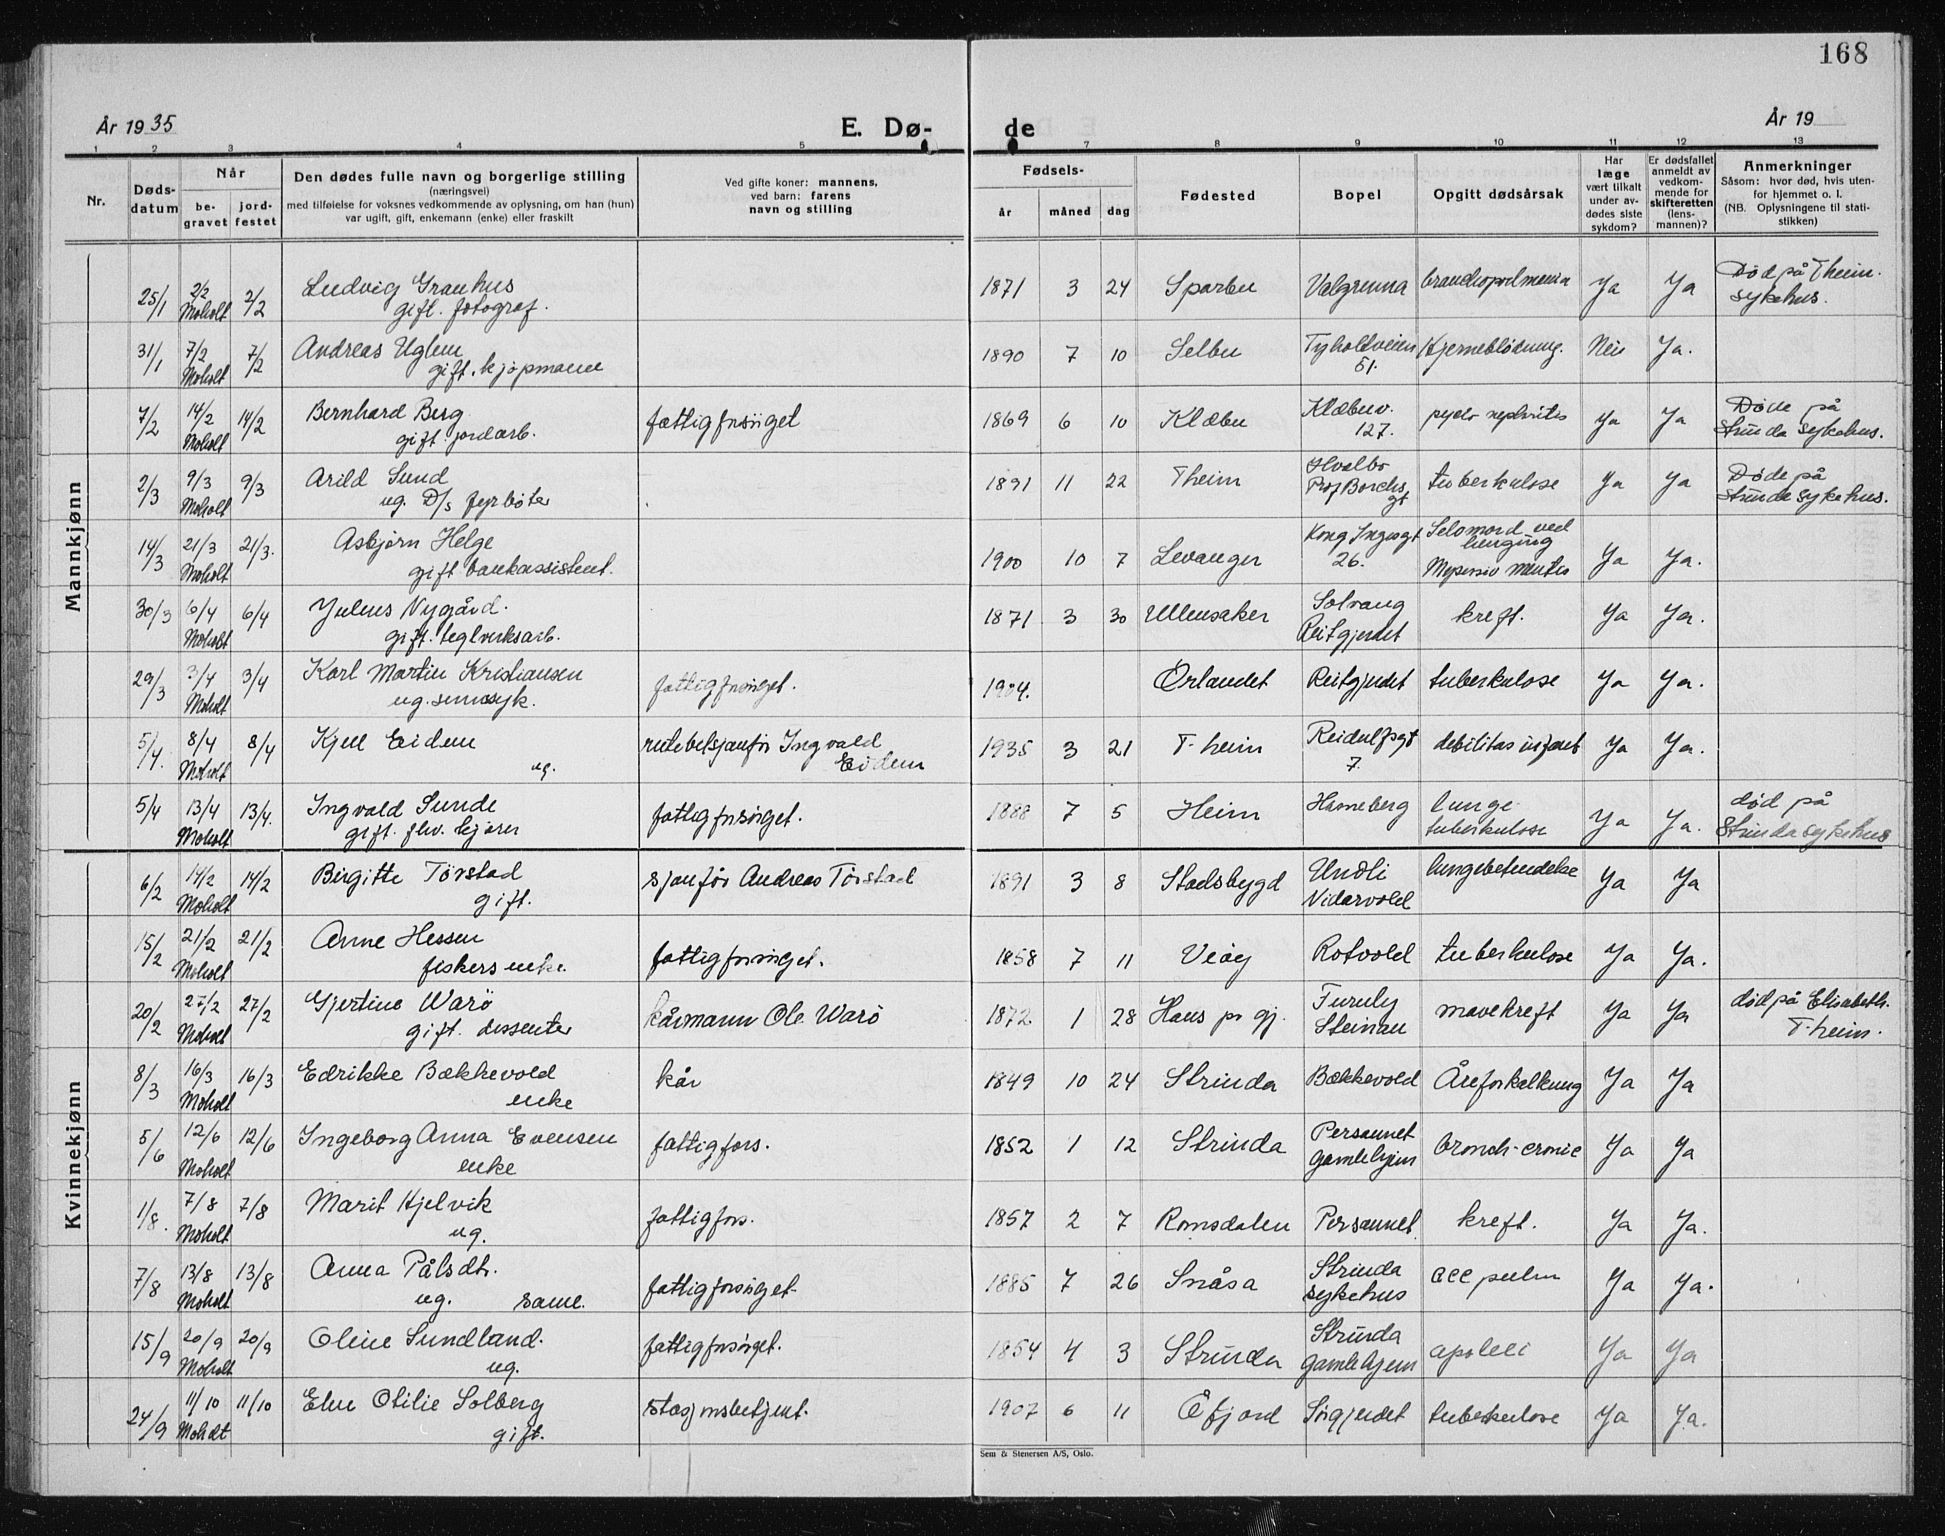 168
År 1935
E. Dø-
de
År 19
1 2 3 4 5 7 8 9 10 11 12 13
Nr.
Døds-
datum
Når
be-
gravet
jord-
festet
Den dødes fulle navn og borgerlige stilling
(næringsvei)
med tilføielse for voksnes vedkommende av oplysning, om han (hun)
var ugift, gift, enkemann (enke) eller fraskilt
Ved gifte koner: mannens,
ved barn: farens
navn og stilling
Fødsels-
år måned dag
Fødested
Bopel
Opgitt dødsårsak
Har
læge
vært tilkalt
under av-
dødes siste
sykdom?
Er dødsfallet
anmeldt av
vedkom-
mende for
skifteretten
(lens-
mannen)?
Anmerkninger
Såsom: hvor død, hvis uten-
for hjemmet o. l.
(NB. Oplysningene til stati-
stikken)
Mannkjønn
25/1 2/2 Moholt 2/2 Ludvig Grauhus 1871 3 24 Sparbu Valgrenna Ja Ja Død på Theim.
gift. fotograf. sykehus.
31/1 7/2 Moholt 7/2 Andreas Uglem 1890 7 10 Selbu Tyholtveien Hjerneblødning. Nei Ja.
gift. kjøpmann 51.
7/2 14/2 Moholt 14/2 Bernhard Berg fattigforsørget 1869 6 10 Klæbu Klæbuv. pyelo nephritis Ja Ja Døde på
gift. jordarb. 127. Strinda sykehus.
2/3 9/3 Moholt 9/3 Arild Sund 1891 11 22 Theim Hvalbo tuberkulose Ja Ja Døde på
ug. D/s fyrbøter Prof Borchs gt Strinda sykehus.
14/3 21/3 Moholt 21/3. Asbjørn Helge 1900 10 7 Levanger Kong Ingesgt Selvmord ved Ja Ja.
gift bankassistent. 26. henging
mentis
30/3 6/4 Moholt 6/4 Julius Nygård. 1871 3 30 Ullensaker Solvang kreft. Ja Ja.
gift. teglverksarb. Reitgjerdet
29/3 3/4 Moholt 3/4 Karl Martin Kristiansen fattigforsørget. 1904. Ørlandet Reitgjerdet tuberkulose Ja Ja.
ug. sinnssyk.
5/4. 8/4 Moholt 8/4 Kjell Eidem rutebilsjauffør Ingvald 1935 3 21 T-heim Reidulfsgt debilitas infant Ja Ja.
ug. Eidem 7.
5/4 13/4 Moholt 13/4. Ingvald Sunde fattigforsørget. 1888 7 5 Heim Havneberg lunge- Ja Ja. død på
gift. fhv. kjører tuberkulose Strinda sykehus
Kvinnekjønn
6/2 14/2 Moholt 14/2 Birgitte Tørstad sjauffør Andreas Tørstad 1891 3 8 Stadsbygd Undli lungebetendelse Ja Ja
gift. Vidarvold
15/2 21/2 Moholt 21/2 Anne Hessen fattigforsørget. 1858 7 11 Veøy Rotvold tuberkulose Ja Ja.
fiskers enke.
20/2 27/2 Moholt 27/2 Gjertine Warø kårmann Ole Warø 1872 1 28 Furuly mavekreft Ja Ja død på Elisabeth.
gift. dissenter Steinan T-heim.
8/3 16/3 Moholt 16/3 Edrikke Bækkevold kår 1849 10 24 Strinda Bækkevold Åreforkalkning Ja Ja
enke
5/6 12/6 Moholt 12/6 Ingeborg Anna Evensen fattigfors. 1852 1 12 Strinda Persaunet bronch-cronic Ja Ja
enke gamlehjem
1/8. 7/8 Moholt 7/8 Marit Hjelvik fattigfors. 1857 2 7 Romsdalen Persaunet kreft. Ja Ja.
ug.
7/8 13/8 Moholt 13/8 Anna Pålsdtr. fattigforsørget- 1885 7 26 Snåsa Strinda Ja Ja.
ug. same. sykehus
15/9 20/9 Moholt 20/9 Oline Sundland. fattigforsørget. 1854 4 3 Strinda Strinda apoleksi Ja Ja
ug. gamlehjem
24/9 11/10 Moholt 11/10 Elne Otilie Solberg stasjonsbetjent. 1907 6 11 Åfjord Sørgjerdet tuberkulose Ja Ja.
gift.
Sem & Stenersen A/S, Oslo.